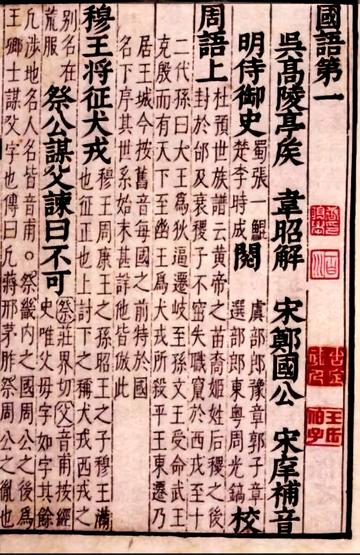 國語第一
吳髙陵亭矦 韋昭解 宋鄭國公 宋庠補音
明侍御史 蜀張一鯤
楚李時成 閱 虞部郎豫章郭子章
選部郎東粤周光鎬 校
周語上 杜預世族譜云黄帝之苗裔姬姓后稷之後
封於邰及衰稷子不窋失職竄於西戎至十
二代孫曰大王爲狄逼遷岐至孫文王受命武王
克殷而有天下至幽王爲犬戎所殺平王東遷乃
居王城今按舊音每國之前特於國
名下序其世系始末甚詳他皆倣此
穆王将征犬戎 穆王周康王之孫昭王之子穆王滿
也征正也上討下之稱犬戎西戎之
别名在
荒服 祭公謀父諫曰不可 祭莊界切父音甫按經
史唯父母字如字其餘
凡涉地名人名皆音甫○祭畿内之國周公之後爲
王卿士謀父字也傳曰凡蔣邢茅胙祭周公之胤也